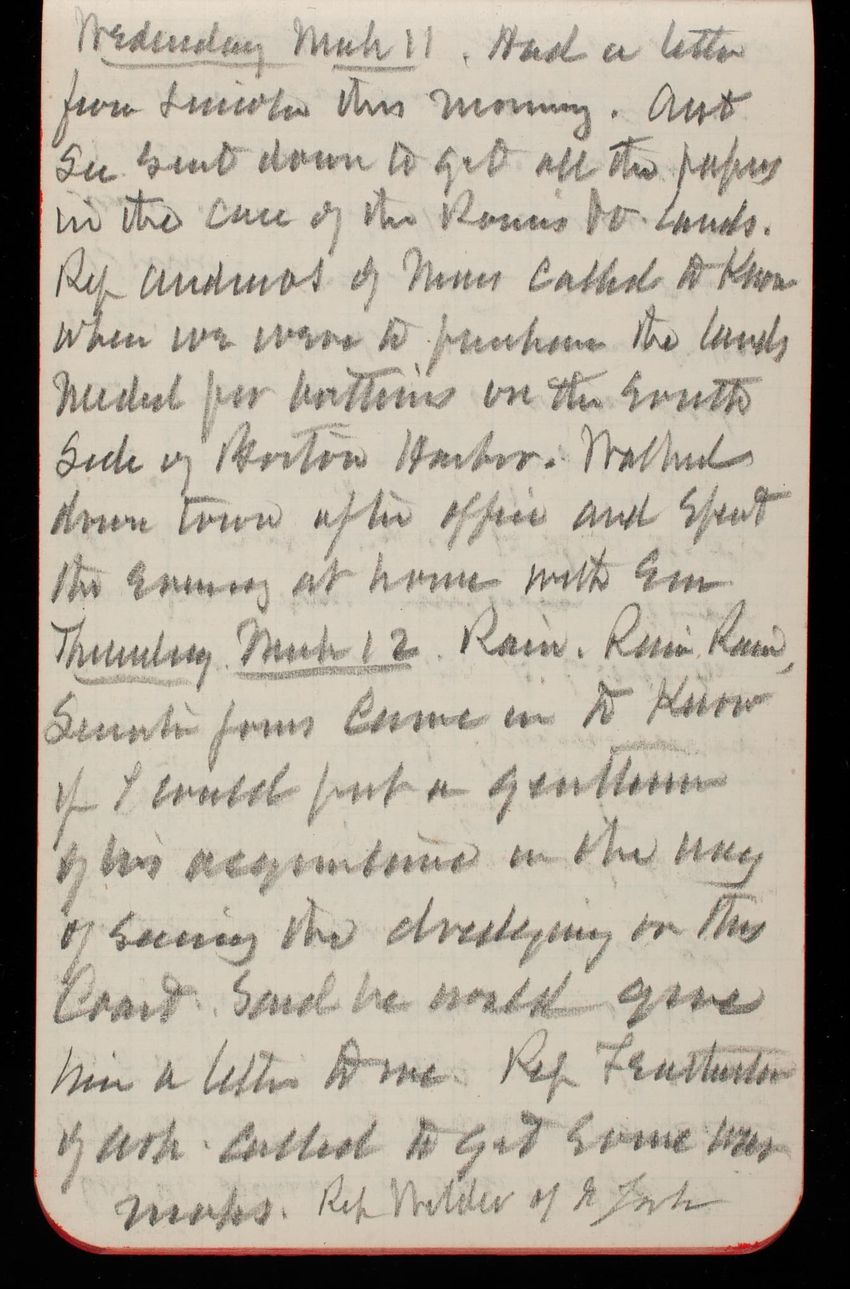 Wednesday Mch 11. Had a letter
from Lincoln this morning. Asst
Sec sent down to get all the papers
in the case of the Lands.
Rep Andrews of Mass called to know
when we were to purchase the lands
needed for batteries on the South
Side of Boston Harbor. Walked
down town after office and Spent
the Evening at home with Em
Thursday Mch 12. Rain. Rain Rain,
Senator came in to Know
if I could put a gentleman
of his acquaintance in the way
of seeing the dredging on this
Coast. Said he would give
him a letter to me. Rep Featherston
of Ark. Called to get some war
maps. Rep Wilder of N York